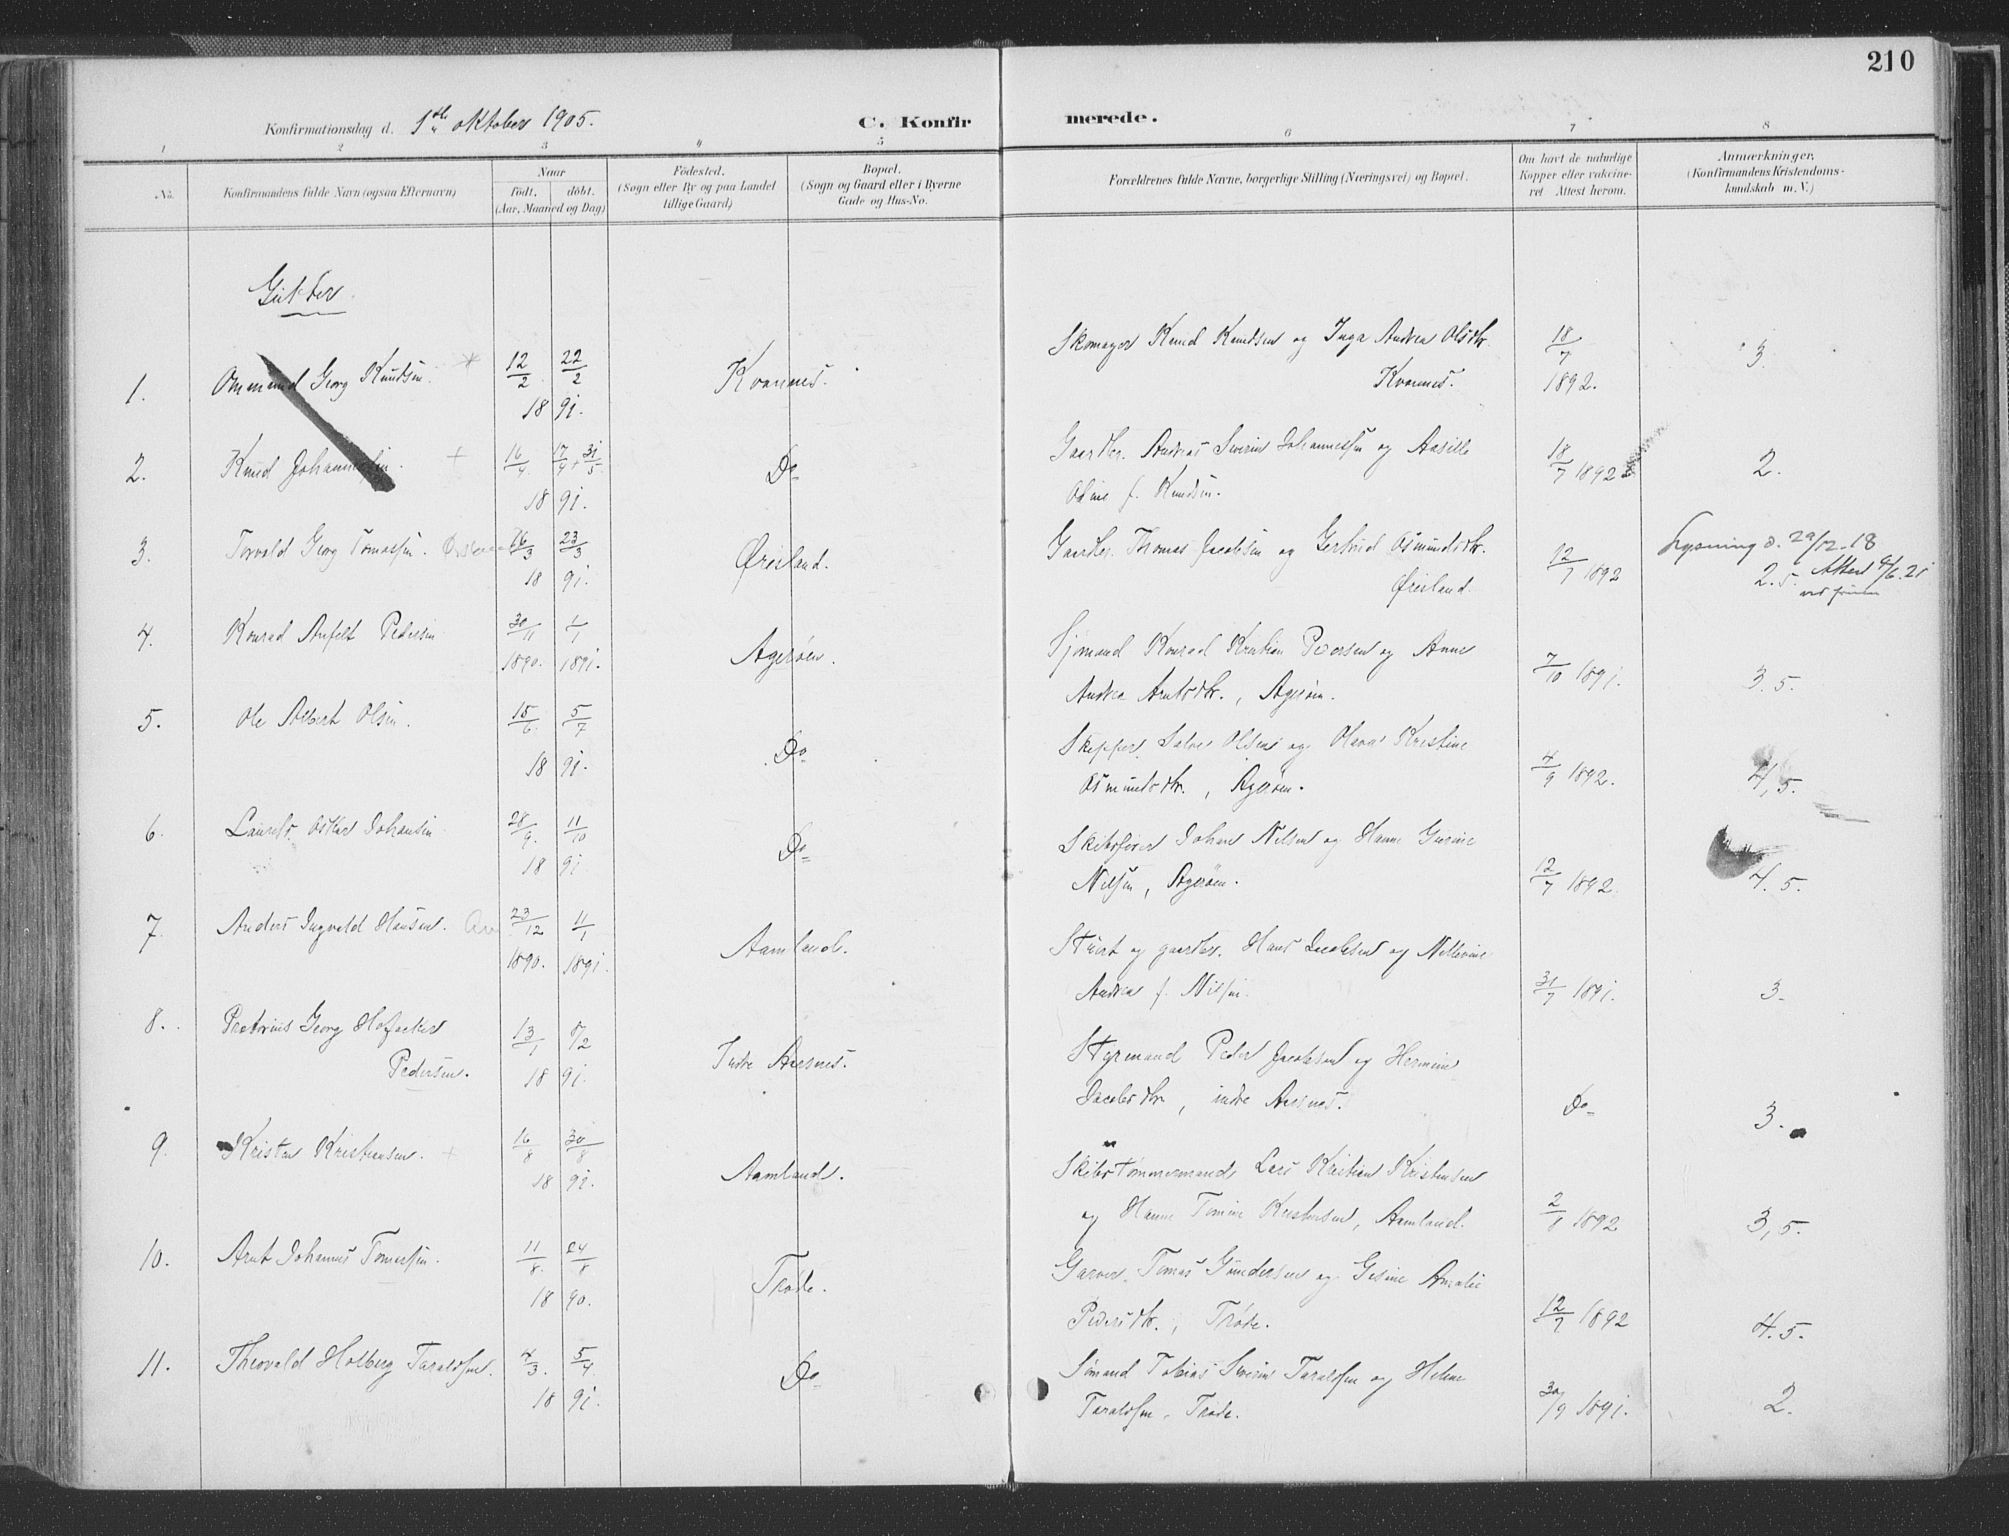 210
Konfirmationsdag d. 1ste oktober 1905. C. Konfirmerede.
1 2 3 4 5 6 7 8
No. Konfirmandens fulde Navn (ogsaa Efternavn) Naar født. døbt. (Aar, Maaned og Dag) Fødested. (Sogn eller By og paa Landet tillige Gaard) Bopæl. (Sogn og Gaard eller i Byerne Gade og Hus-No. Forældrenes fulde Navne, borgerlige Stilling (Næringsvei) og Bopæl. Om havt de naturlige Kopper eller vakcineret Attest herom. Anmærkninger. (Konfirmandens Kristendomskundskab m. V.)
Gutter
1. Ommund Georg Knudsen. 12/2 22/2 1891. Kvannes. Skomager Knud Knudsen og Inga Andrea Olsdtr. Kvannes. 18/7 1892. 3.
2. Knud Johannessen. + 16/4. 17/4 + 31/5 1891. Do Gaardbr. Andreas Severin Johannessen og Aasille Oline f. Knudsen. 18/7 1892 2.
3. Torvald Georg Tomassen. 16/3 23/3 1891. Øresland. Gaardbr. Thomas Jacobsen og Gertrud Osmundsdtr. Øresland. 12/7 1892 Lysning d. 29/12-18
2.5. Attest 4/6.21
4. Konrad Anfelt Pedersen 30/11 1890. 1/1 1891. Agerøen. Sjømand Konrad Kristian Pedersen og Anne Andrea Arntsdtr., Agerøen. 7/10 1891. 3.5.
5. Ole Albert Olsen. 15/6. 5/7 1891. Do Skipper Salve Olsen og Olava Kristine Osmundsdtr., Agerøen. 4/9 1892. 4,5.
6. Laurits Oskar Johansen 28/9. 11/10 1891 Do Skibsfører Johan Nilsen og Hanne Gurine Nilsen, Agerøen. 12/7 1892. 4.5.
7. Anders Ingvald Hansen. 23/12 1890. 11/1 1891. Aamland. Stuert og gaardbr. Hans Jacobsen og Andrea f. Nilsen. 31/7 1891. 3.
8. Georg Pedersen. 13/1 8/2 1891. Indre Aaresnes. Styrmand Peder Jacobsen og Hermine Jacobsdtr, indre Aaresnes. Do 3.
9. Kristen Kristensen. + 16/8 30/8 1891. Aamland. Skibstømmermand Lars Kristian Kristensen og Hanne Tomine Kristensen, Aamland. 2/8 1892 3,5.
10. Arnt Johannes Tomassen. 11/8. 24/8 1890. Trøde. Garver Tomas Gundersen og Gesine Amalie Pedersdtr., Trøde. 12/7 1892 4.5.
11. Theovald Holberg Taraldsen. 4/3. 5/4. 1891. Do Sømand Tobias Severin Taraldsen og Helene Taraldsen, Trøde. 30/9 1891. 2.